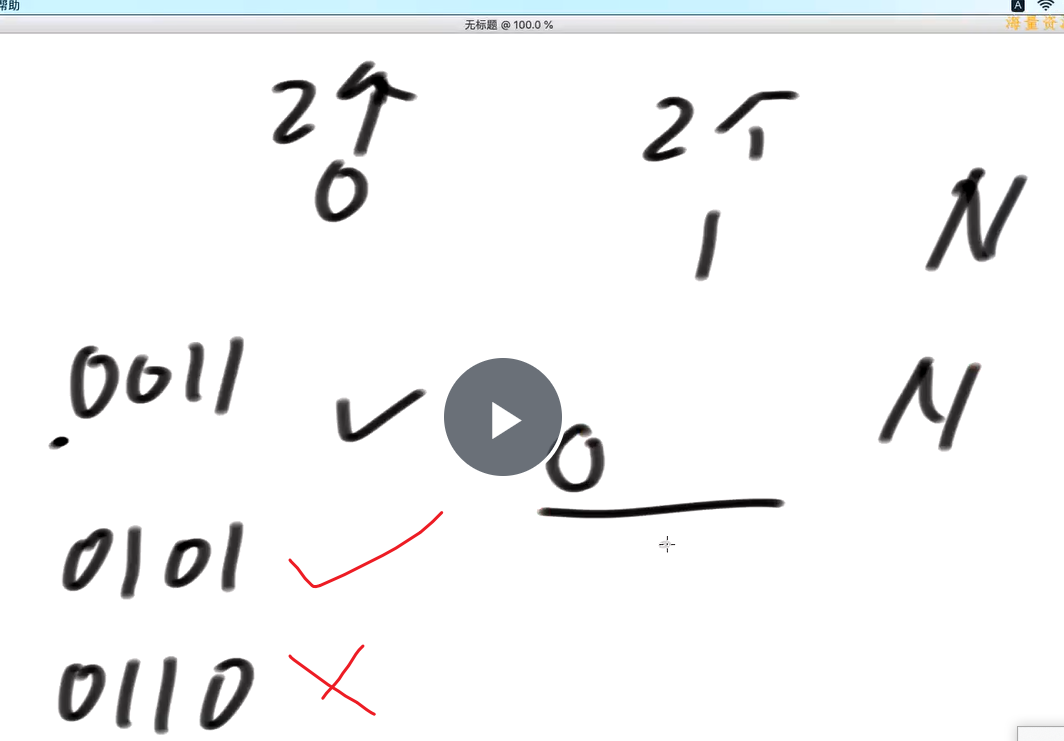 帮助
A
无标题 @ 100.0 %
海量资
2个
0
2个
1
N
0011
0
M
0101
0110